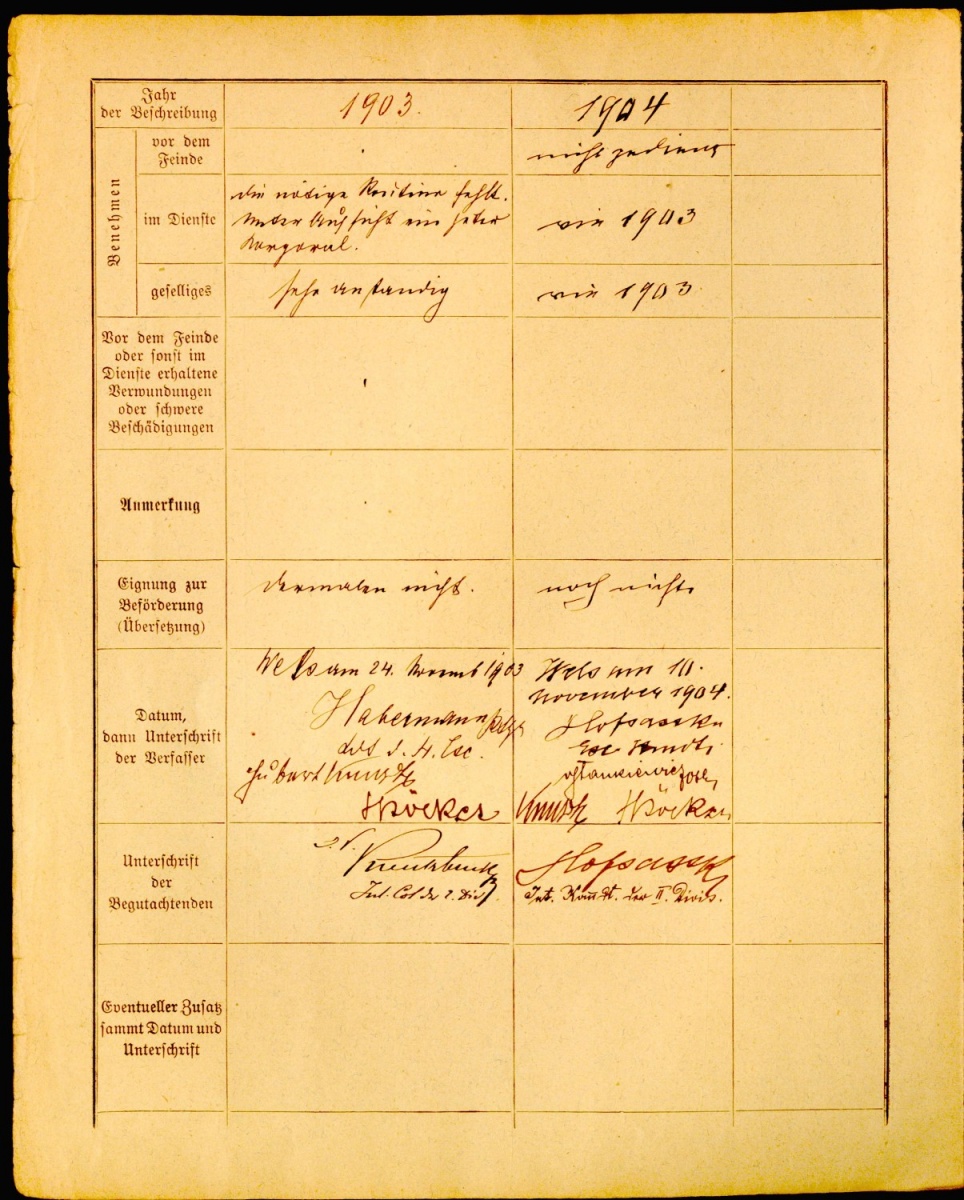 Jahr
der Beschreibung
1903.
1904
Benehmen
vor dem
Feinde
nicht gedient
im Dienste
die nötige Routine fehlt.
Unter Aufsicht ein guter
Korporal.
wie 1903
geselliges
sehr anständig
wie 1903
Vor dem Feinde
oder sonst im
Dienste erhaltene
Verwundungen
oder schwere
Beschädigungen
Anmerkung
Eignung zur
Beförderung
(Übersetzung)
dermalen nicht.
noch nicht
Datum,
dann Unterschrift
der Verfasser
Wels am 24. Novemb 1903
Habermann
Hubert
Höcker
Wels am 10.
November 1904.
Hofsass
Höcker
Unterschrift
der
Begutachtenden
Int. Cdt der 2. Div.
Hofsass
Int. Komdt. der II. Divis.
Eventueller Zusatz
sammt Datum und
Unterschrift